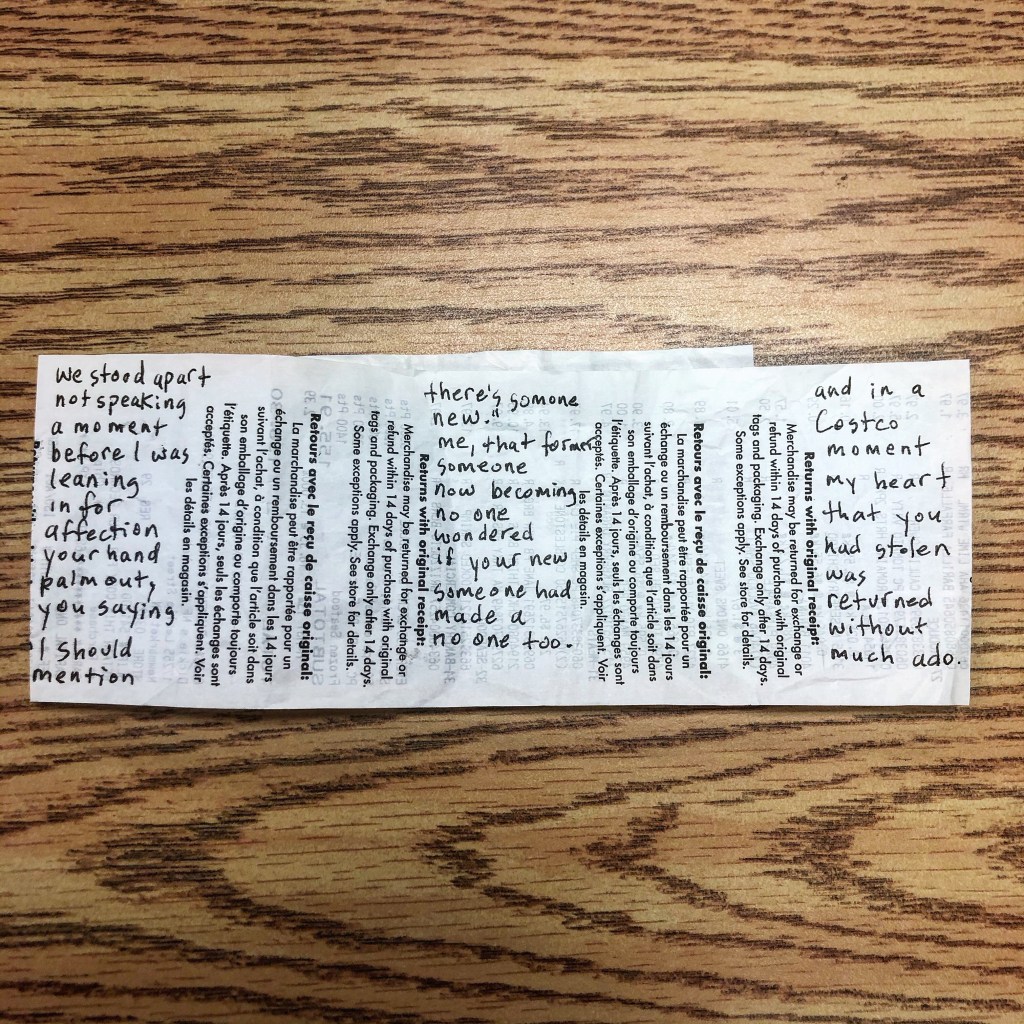 we stood apart
not speaking
a moment
before I was
leaning
in for
affection
your hand
palm out,
you saying
I should
mention
les détails en magasin.
acceptés. Certaines exceptions s'appliquent. Voir
l'étiquette. Après 14 jours, seuls les échanges sont
son emballage d'origine ou comporte toujours
suivant l'achat, à condition que l'article soit dans
échange ou un remboursement dans les 14 jours
La marchandise peut être rapportée pour un
Retours avec le reçu de caisse original:
Some exceptions apply. See store for details.
tags and packaging. Exchange only after 14 days.
refund within 14 days of purchase with original
Merchandise may be returned for exchange or
Returns with original receipt:
there's somone
new."
me, that former
someone
now becoming
no one
wondered
if your new
someone had
made a
no one too.
les détails en magasin.
acceptés. Certaines exceptions s'appliquent. Voir
l'étiquette. Après 14 jours, seuls les échanges sont
son emballage d'origine ou comporte toujours
suivant l'achat, à condition que l'article soit dans
échange ou un remboursement dans les 14 jours
La marchandise peut être rapportée pour un
Retours avec le reçu de caisse original:
Some exceptions apply. See store for details.
tags and packaging. Exchange only after 14 days.
refund within 14 days of purchase with original
Merchandise may be returned for exchange or
Returns with original receipt:
and in a
Costco
moment
my heart
that you
had stolen
was
returned
without
much ado.